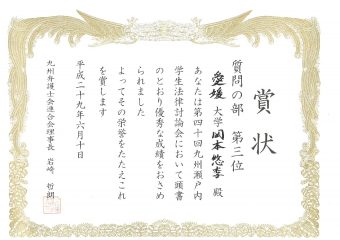 賞状
質問の部　第三位
愛媛大学 関本悠李 殿
あなたは第四十回九州瀬戸内
学生法律討論会において頭書
のとおり優秀な成績をおさめ
られました
よってその栄誉をたたえこれ
を賞します
平成二十九年六月十日
九州弁護士会連合会理事長　岩崎　哲朗